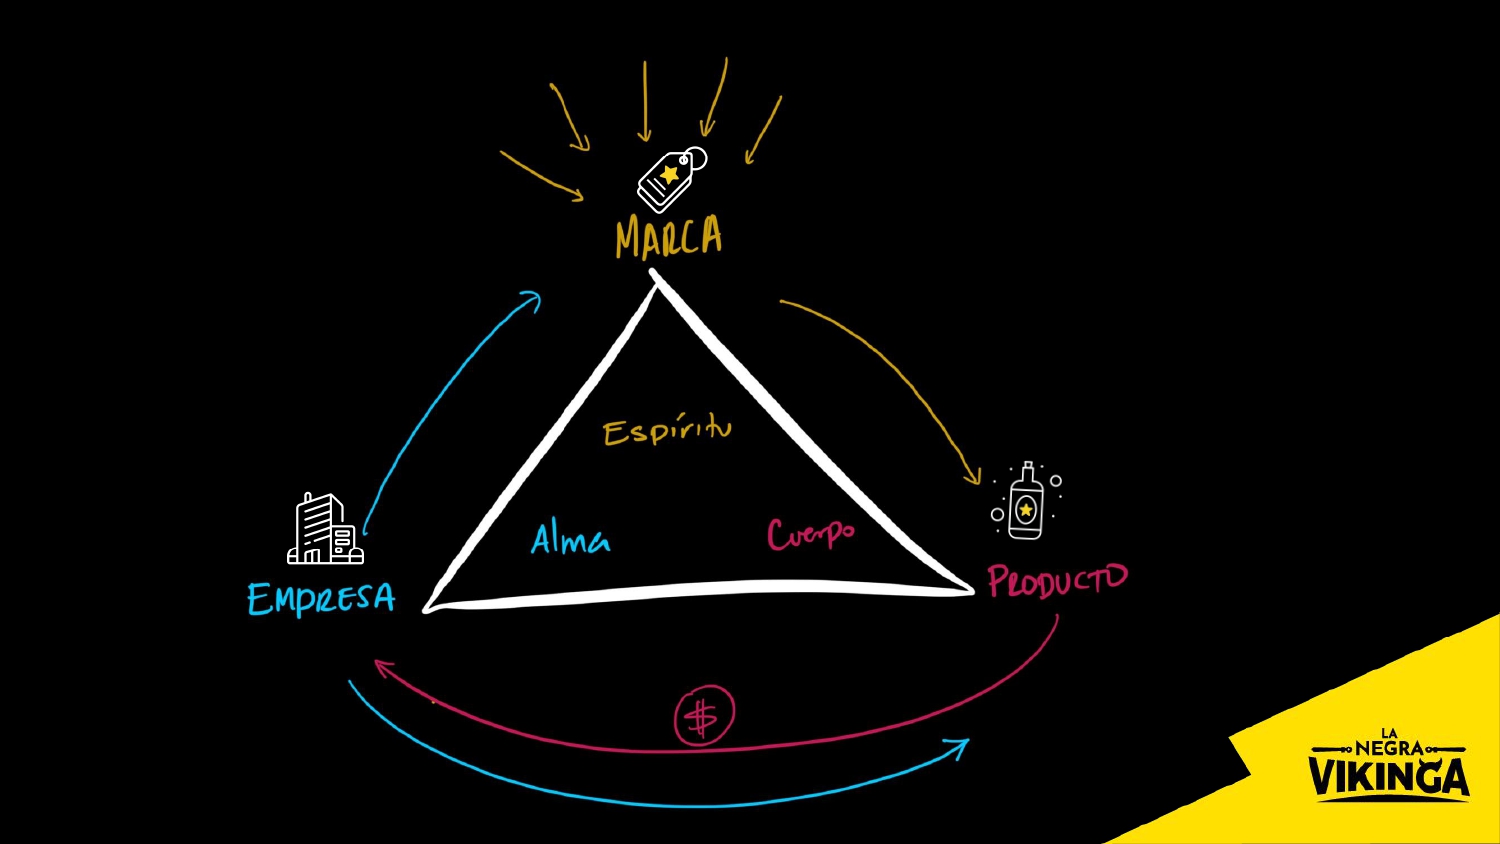 MARCA
Espíritu
Alma
Cuerpo
EMPRESA
PRODUCTO
$
LA
NEGRA
VIKINGA